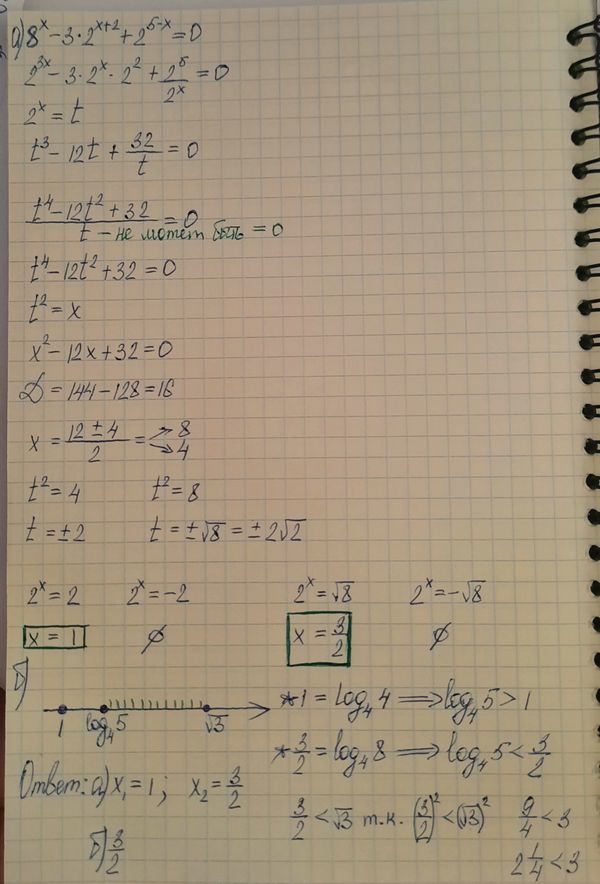 а) 8^x − 3·2^(x+2) + 2^(5−x) = 0
2^(3x) − 3·2^x·2² + 2⁵/2^x = 0
2^x = t
t³ − 12t + 32/t = 0
(t⁴ − 12t² + 32)/t = 0
t – не может быть = 0
t⁴ − 12t² + 32 = 0
t² = x
x² − 12x + 32 = 0
D = 144 − 128 = 16
x = (12 ± 4)/2 = → 8 → 4
t² = 4 t² = 8
t = ±2 t = ±√8 = ±2√2
2^x = 2 2^x = −2 2^x = √8 2^x = −√8
x = 1 ∅ x = 3/2 ∅
б)
1 log₄5 √3
*1 = log₄4 ⟹ log₄5 > 1
*3/2 = log₄8 ⟹ log₄5 < 3/2
3/2 < √3 т.к. (3/2)² < (√3)² 9/4 < 3
2 1/4 < 3
Ответ: а) x₁ = 1; x₂ = 3/2
б) 3/2